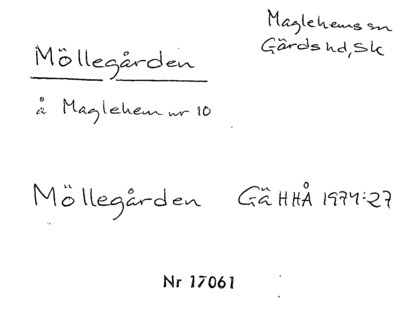 Maglehems sn
Gärds hd, Sk
Möllegården
å Maglehem nr 10
Möllegården GäHHÅ 1974:27
Nr 17061